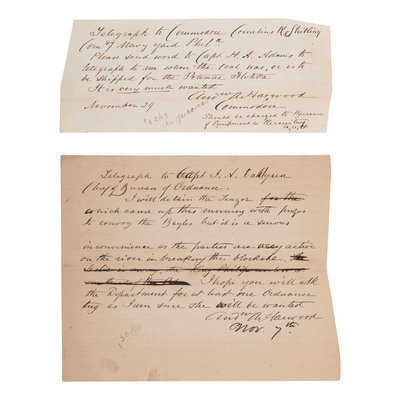 Telegraph to Commodore Cornelius K Stribling
Comdt Navy Yard Phila
Please send word to Capt H. A. Adams to
telegraph to me when the coal was, or is to
be shipped for the Potomac flotilla
It is very much wanted
Andw A. Harwood
November 29
Commodore
Should be charged to Bureau
of Equipment & Recruiting
Telegraph to Capt J. A. Dahlgren
Chief of Bureau of Ordnance.
I will detain the Teazer for the
which came up this morning with
to convoy the but it is a serious
inconvenience as the parties are very active
on the river in breaking the blockade. the
I hope you will ask
the Department for at least one Ordnance
tug as I am sure she will be wanted
Andw A. Harwood
Nov. 7th